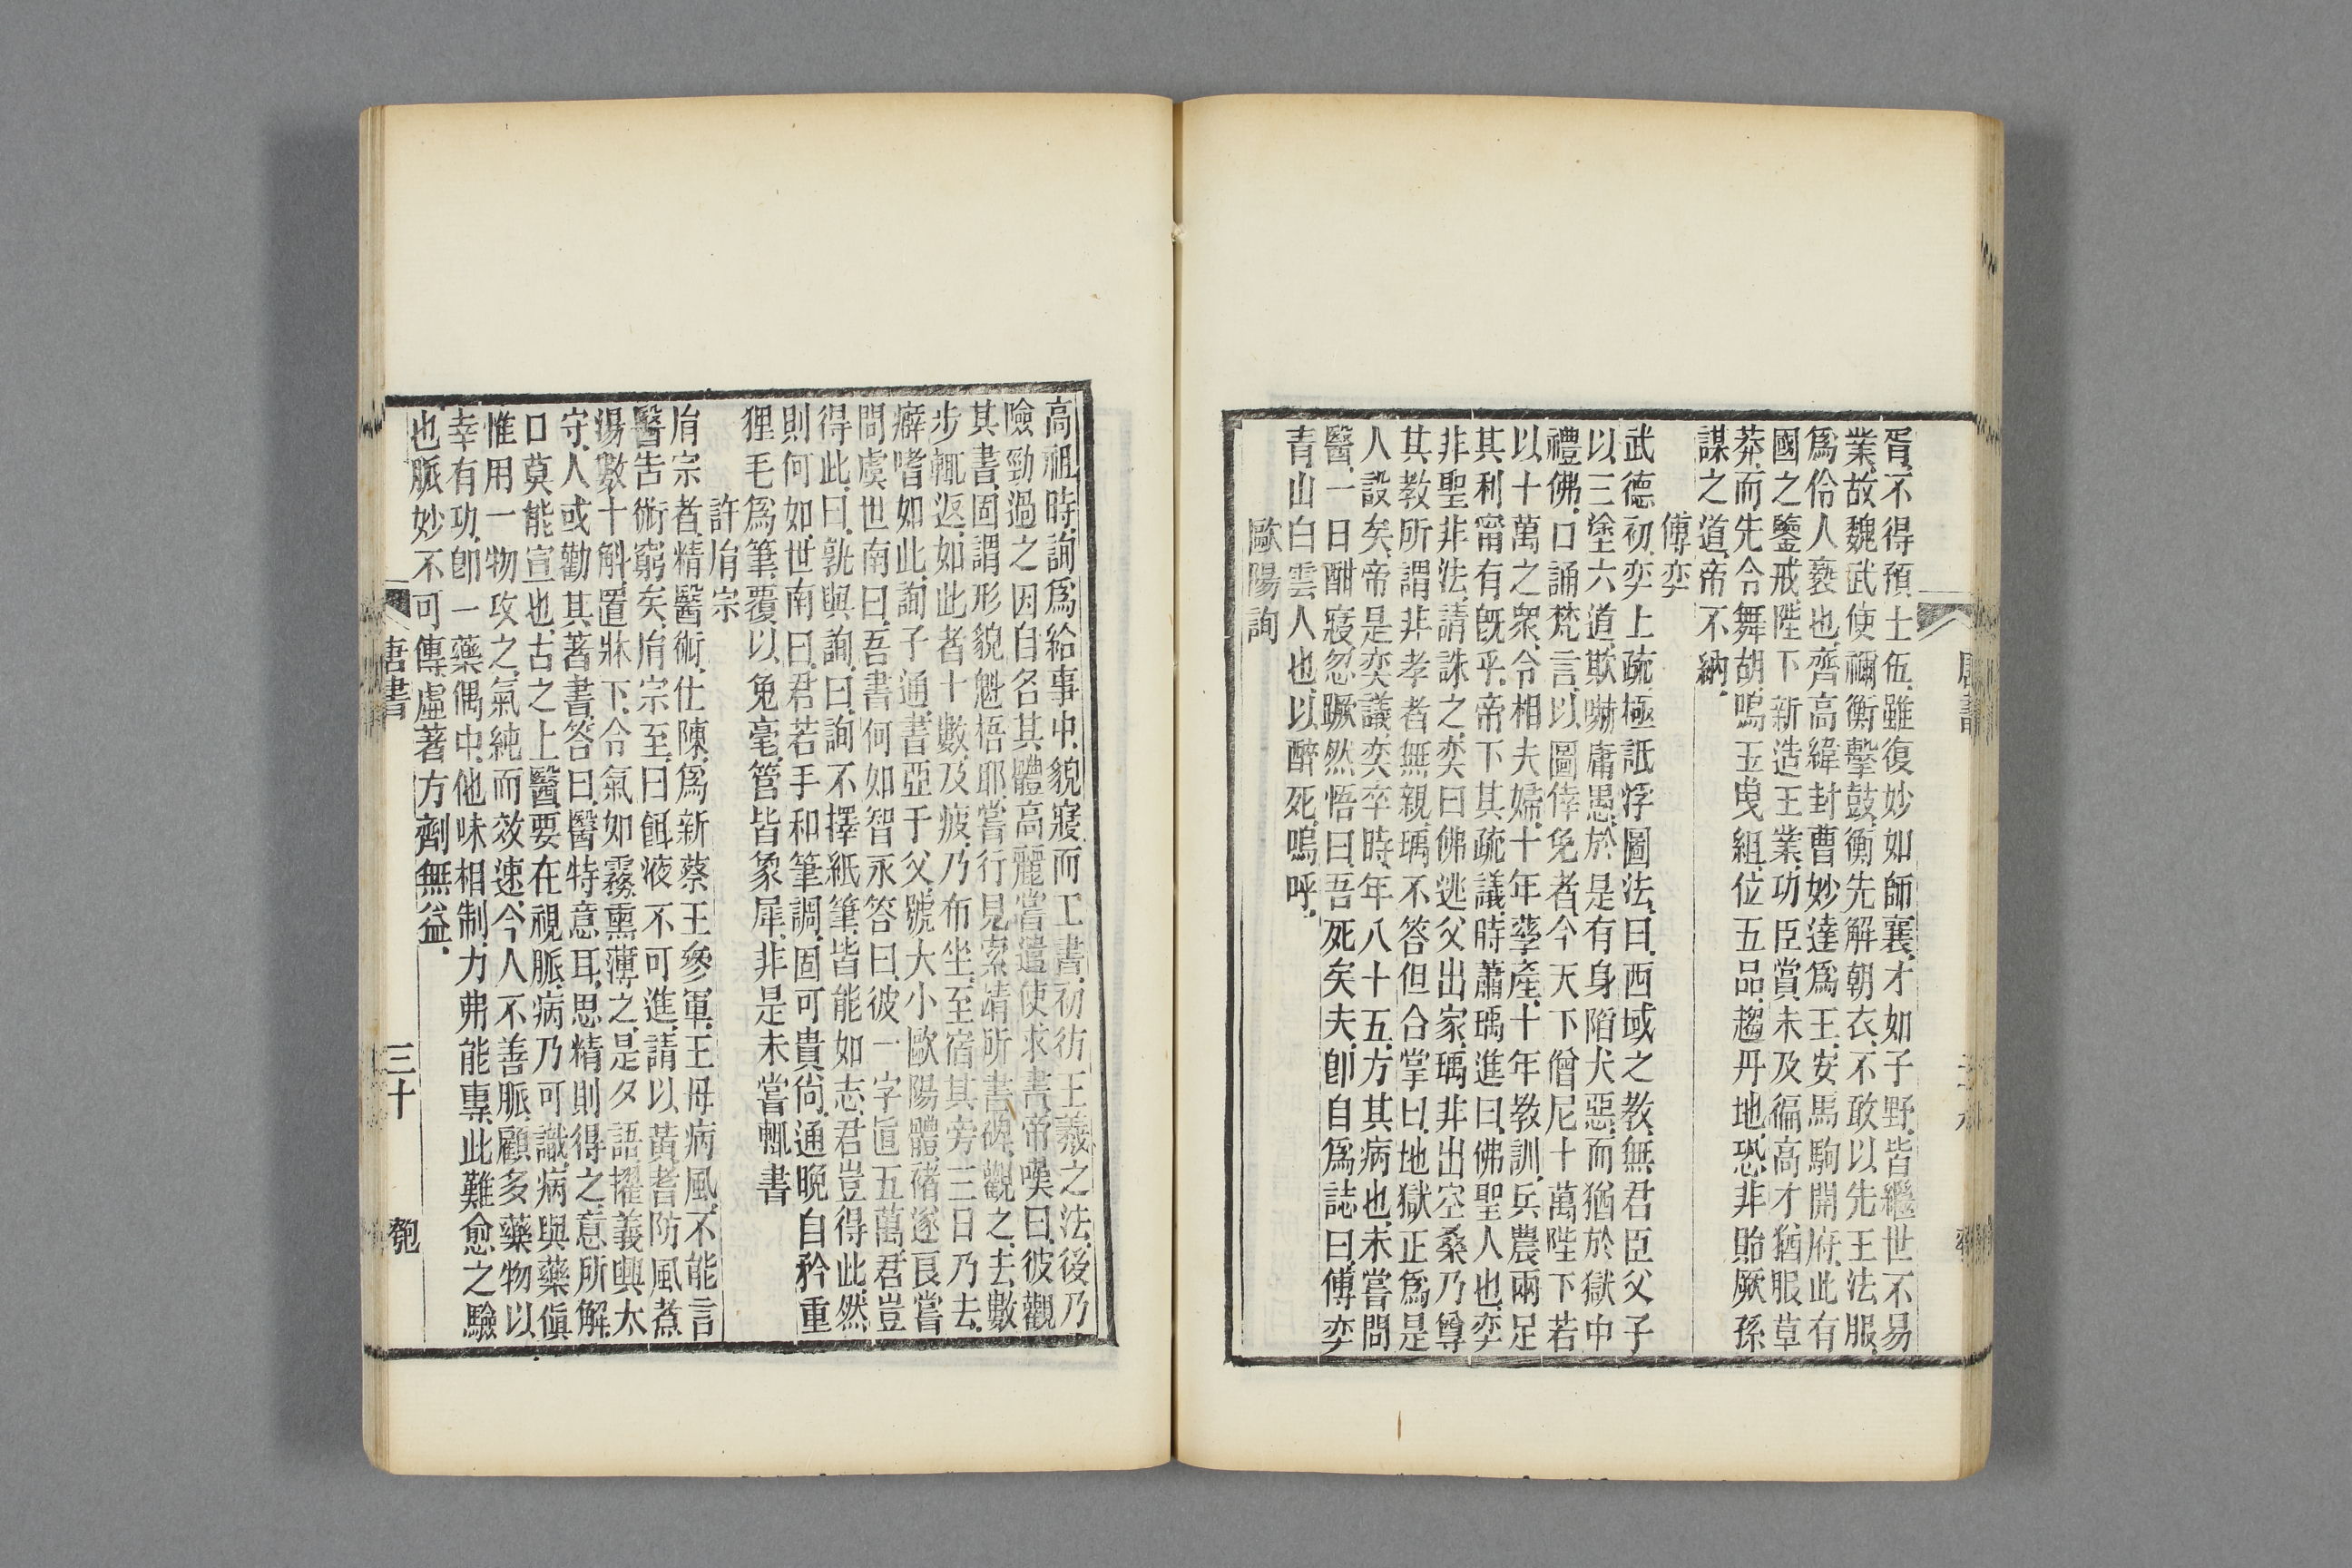 胥、不得預士伍、雖復妙如師襄、才如子野、皆繼世不易
業、故魏武使禰衡擊鼓、衡先解朝衣、不敢以先王法服、
爲伶人褻也、齊高緯封曹妙達爲王、安馬駒開府、此有
國之鑒戒、陛下新造王業、功臣賞未及徧、高才猶服草
莽、而先令舞胡、鳴玉曳組、位五品、趨丹地、恐非貽厥孫
謀之道、帝不納、
傅奕
武德初、奕上疏極詆浮圖法、曰、西域之教、無君臣父子
以三塗六道、欺嚇庸愚、於是有身陷犬惡、而猶於獄中
禮佛、口誦梵言、以圖倖免者、今天下僧尼十萬、陛下若
以十萬之衆、令相夫婦、十年孳產、十年教訓、兵農兩足
其利甯有旣乎、帝下其疏議、時蕭瑀進曰、佛聖人也、奕
非聖非法、請誅之、奕曰佛逃父出家、瑀非出空桑乃尊
其教所謂非孝者無親、瑀不答但合掌曰、地獄正爲是
人設矣、帝是奕議、奕卒時、年八十五、方其病也、未嘗問
醫、一日酣寢、忽蹶然悟曰、吾死矣夫、卽自爲誌曰、傅奕
青山白雲人也、以醉死、嗚呼、
歐陽詢
唐書
高祖時、詢爲給事中、貌寢而工書、初彷王羲之法、後乃
險勁過之因自名其體高麗嘗遣使求書、帝嘆曰、彼觀
其書、固謂形貌魁梧耶、嘗行見索靖所書碑、觀之、去、數
步輒返、如此者十數、及疲、乃布坐、至宿其旁三日乃去、
癖嗜如此、詢子通、書亞于父、號大小歐陽體、褚遂良嘗
問虞世南曰、吾書何如智永答曰、彼一字直五萬、君豈
得此、曰、孰與詢、曰、詢不擇紙筆、皆能如志、君豈得此、然
則何如、世南曰、君若手和筆調、固可貴尙、通晩自矜重
狸毛爲筆、覆以兔毫、管皆象犀、非是未嘗輒書
許胤宗
胤宗者、精醫術、仕陳、爲新蔡王參軍、王母病風、不能言
醫告術窮矣、胤宗至、曰餌液不可進、請以黃耆防風煮
湯數十斛、置牀下、令氣如霧熏薄之、是夕語、擢義興太
守、人或勸其著書、答曰、醫特意耳、思精則得之、意所解、
口莫能宣也、古之上醫、要在視脈、病乃可識、病與藥値
惟用一物攻之、氣純而效速、今人不善脈、顧多藥物以
幸有功、卽一藥偶中、他味相制、力弗能專、此難愈之驗
也、脈妙不可傳、虛著方劑無益、
唐書
三十